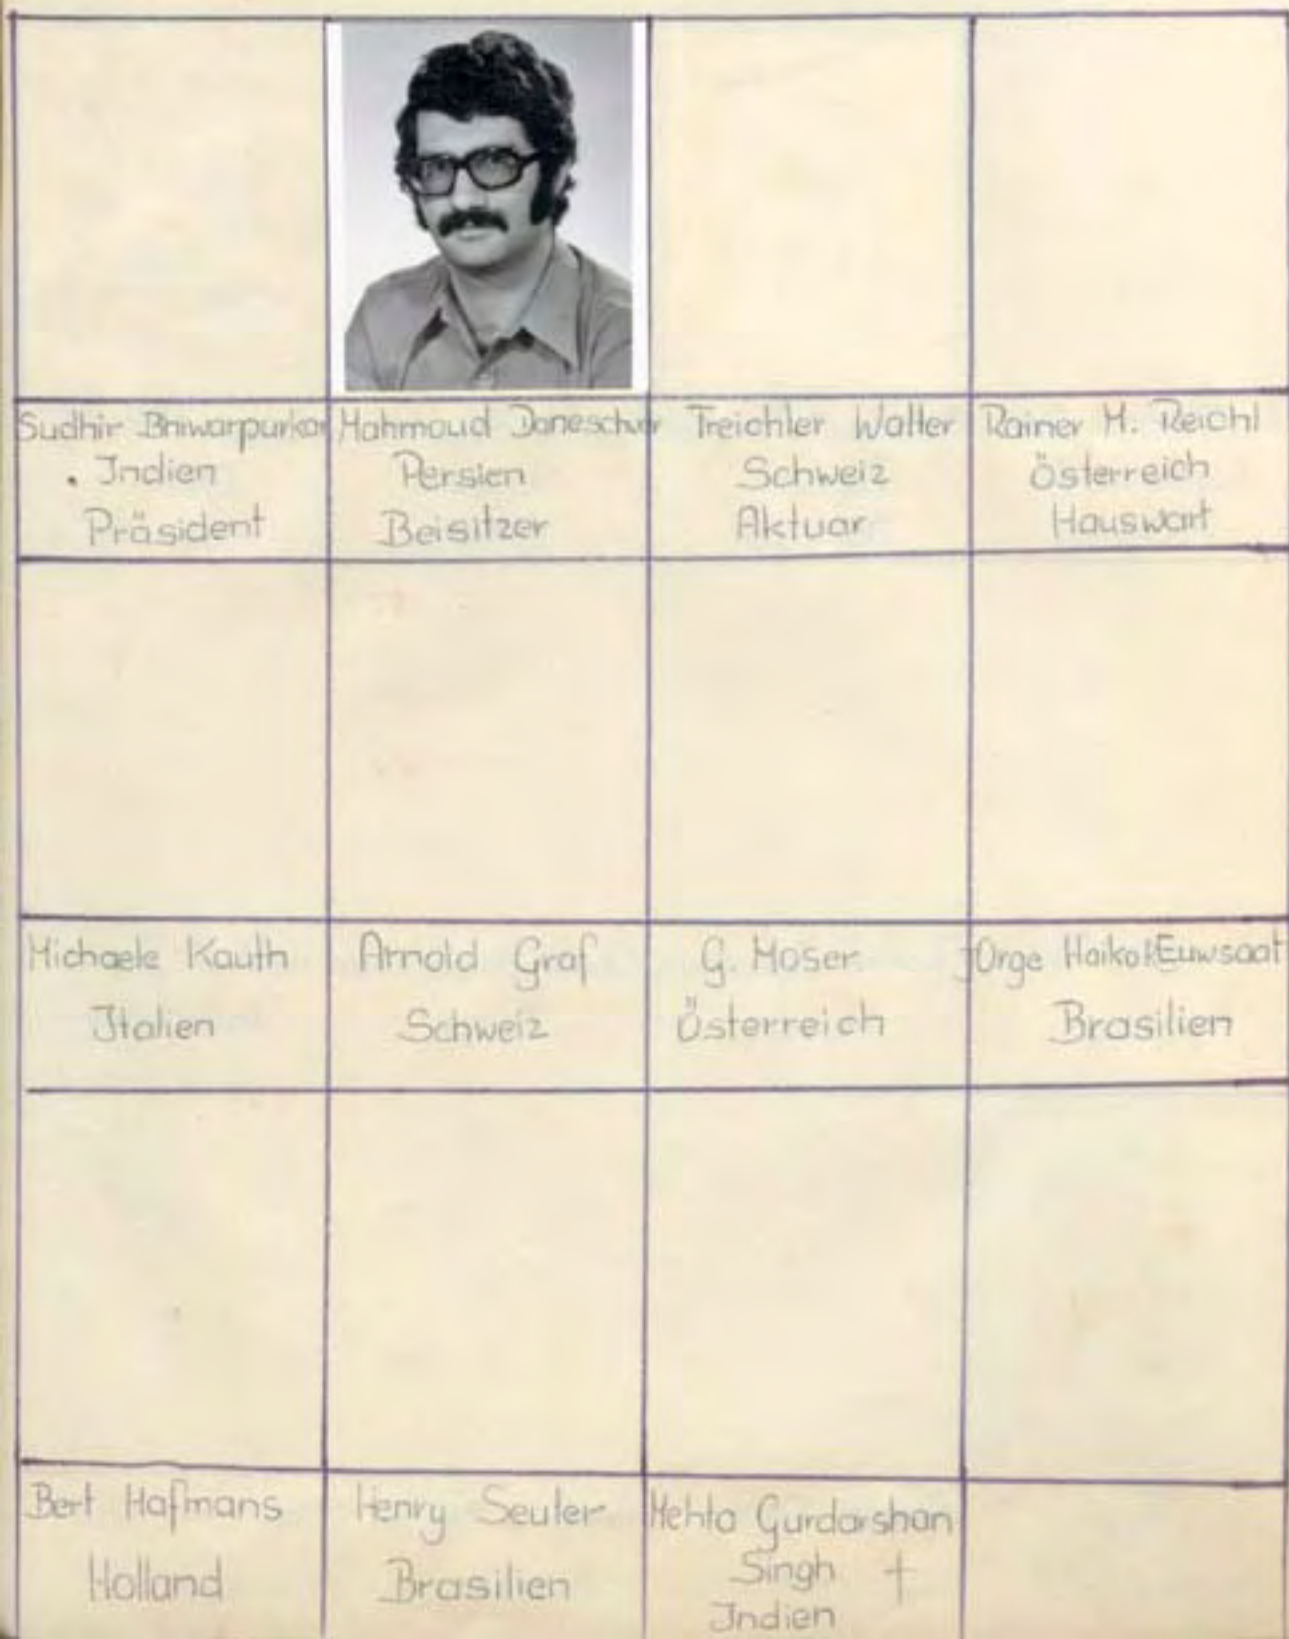 Sudhir Bniwarpurkar
Indien
Präsident
Mahmoud Daneschver
Persien
Beisitzer
Treichler Walter
Schweiz
Aktuar
Rainer M. Reichl
Österreich
Hauswart
Michaele Kauth
Italien
Arnold Graf
Schweiz
G. Moser
Österreich
Jorge Euwsaat
Brasilien
Bert Hafmans
Holland
Henry Seuler
Brasilien
Mehta Gurdarshan
Singh †
Indien